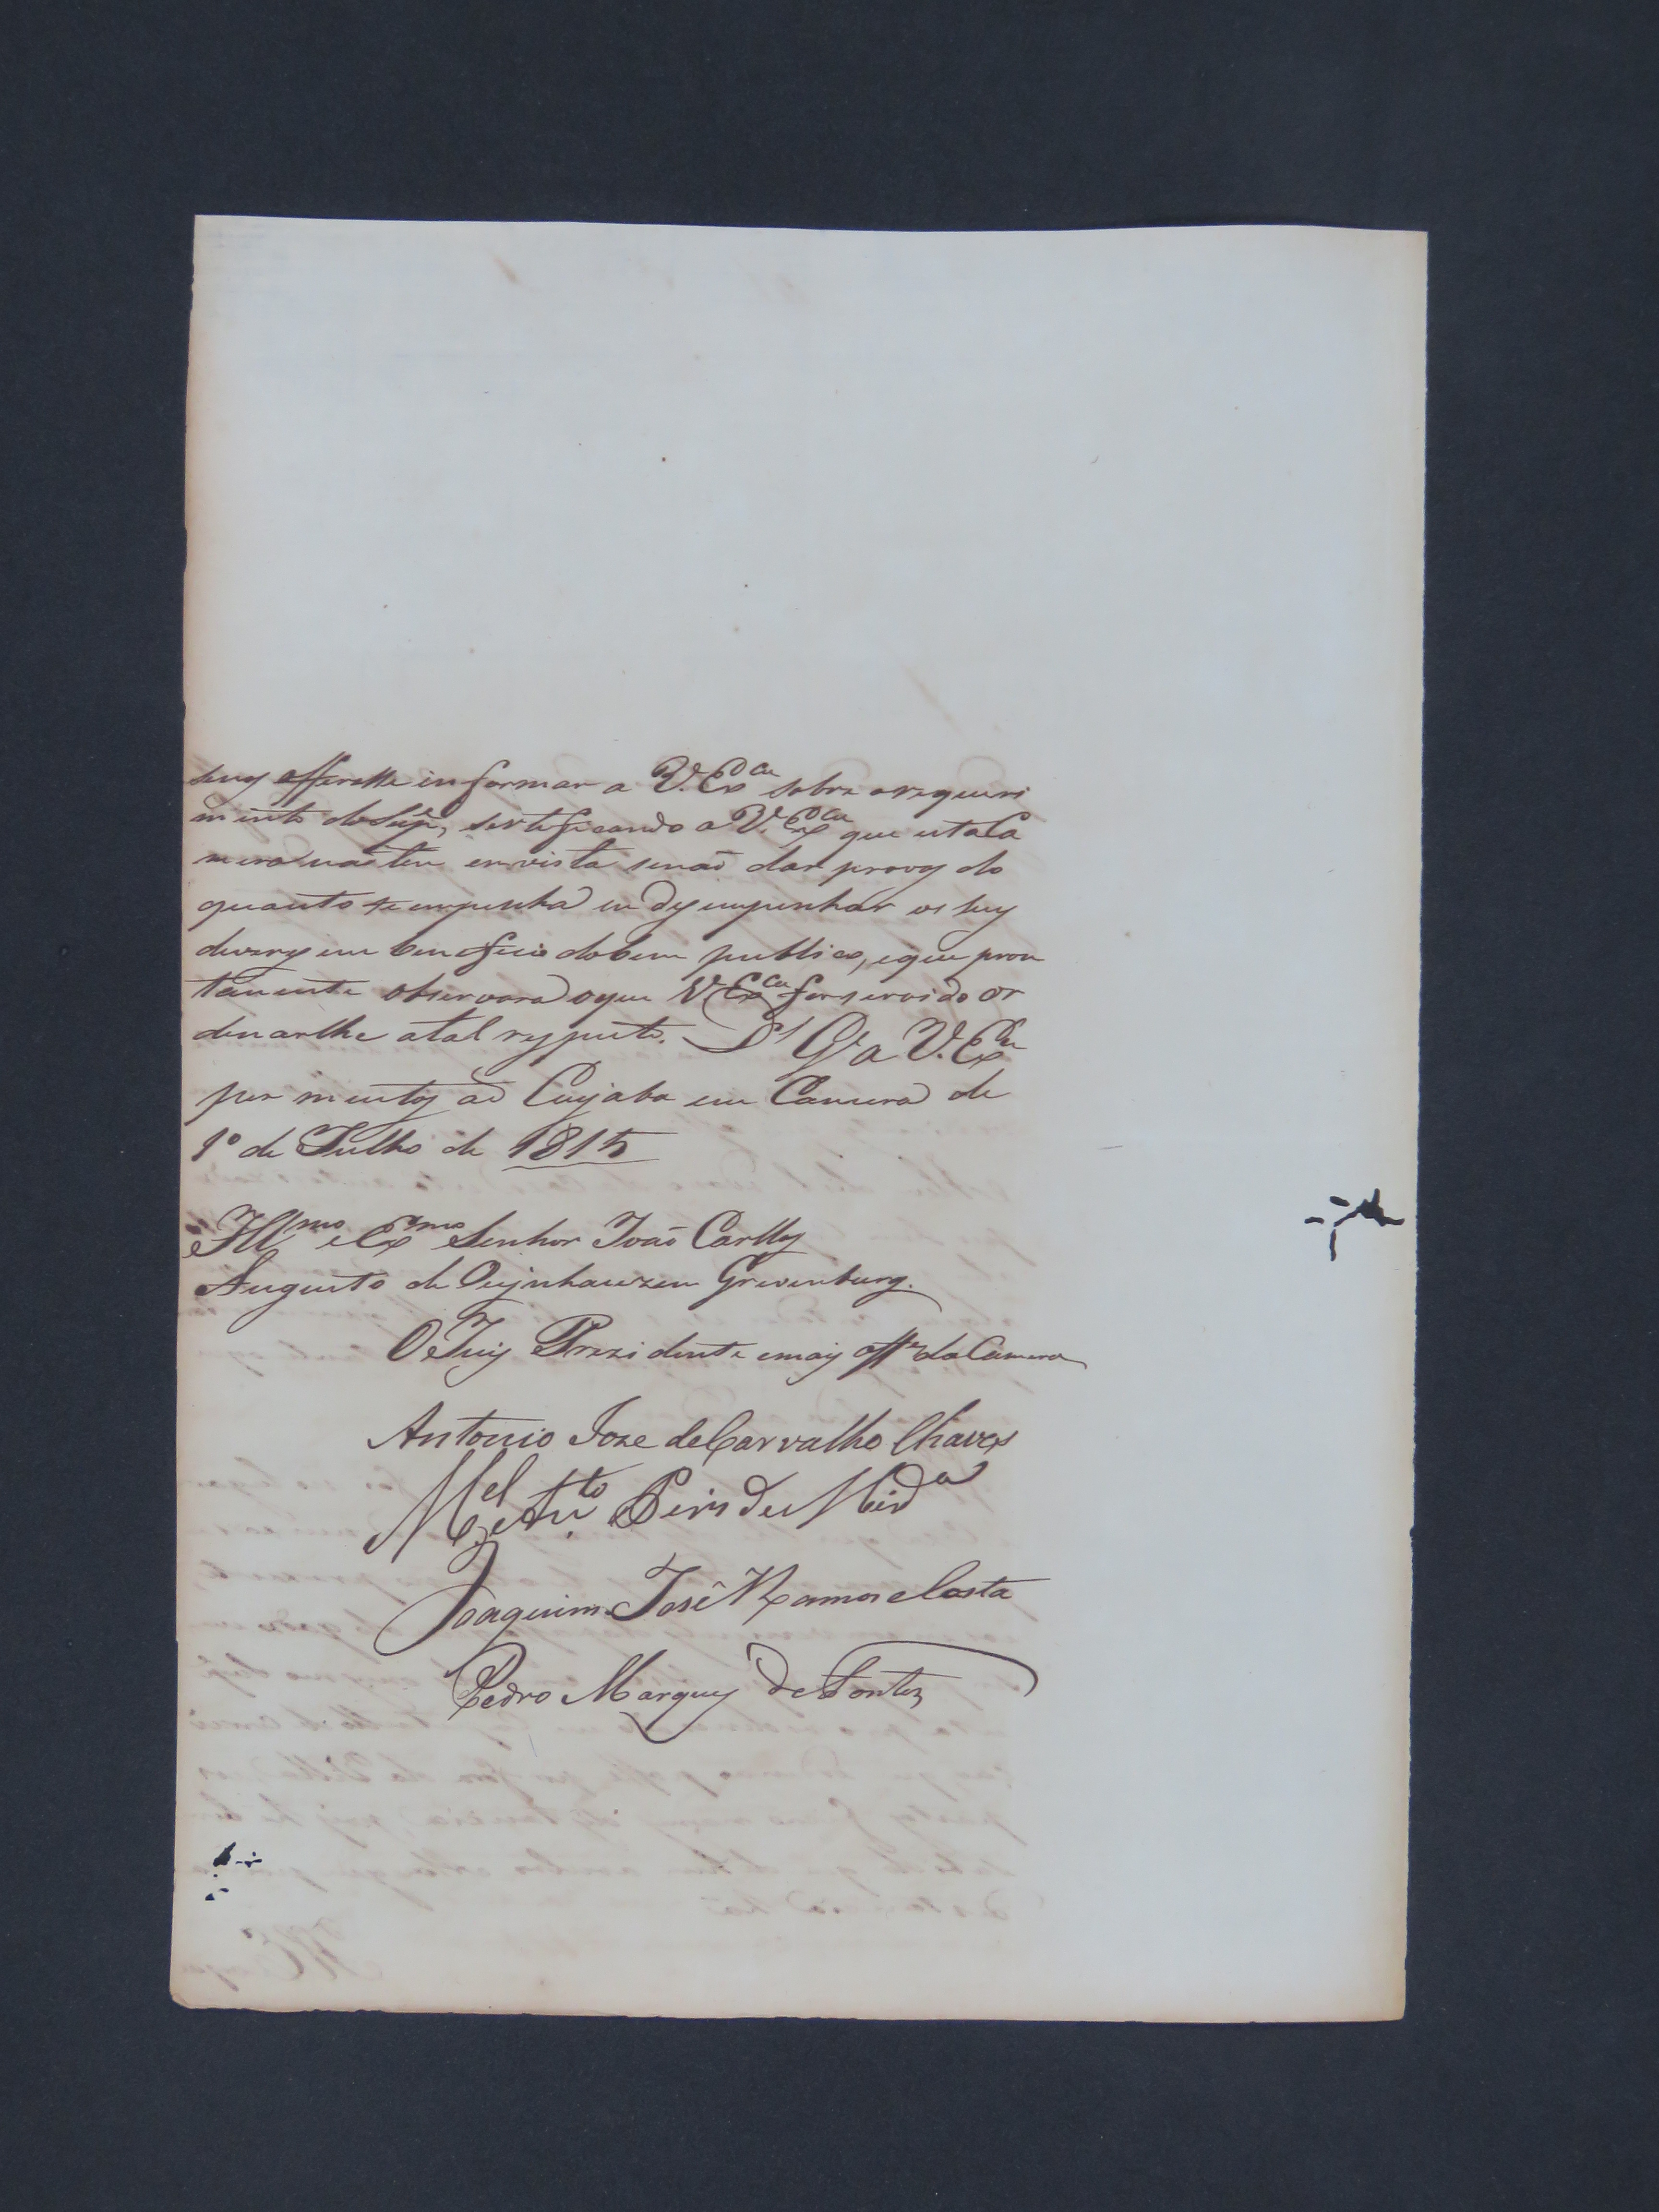 informar a V. Exca sobre o requeri
mento do Supe, serteficando a V. Exca que esta Ca
mera naõ tem em vista senaõ dar provas do
quanto se empenha em desempenhar os seus
deveres em beneficio do bem publico, e que pron
tamente observará o que V Exca for servido or
denarlhe a tal respeito. Ds Ge a V. Exca
por muitos as Cuyaba em Camera de
1º de Julho de 1815
Illmo e Exmo Senhor Joaõ Carllos
Augusto de Oeynhauzen Grevenburg.
O Juis Prezidente e mais offes da Camera
Antonio Joze de Carvalho Chaves
Mel Anto Pires de Mirda
Joaquim José Ramos e Costa
Pedro Marques de Fontes